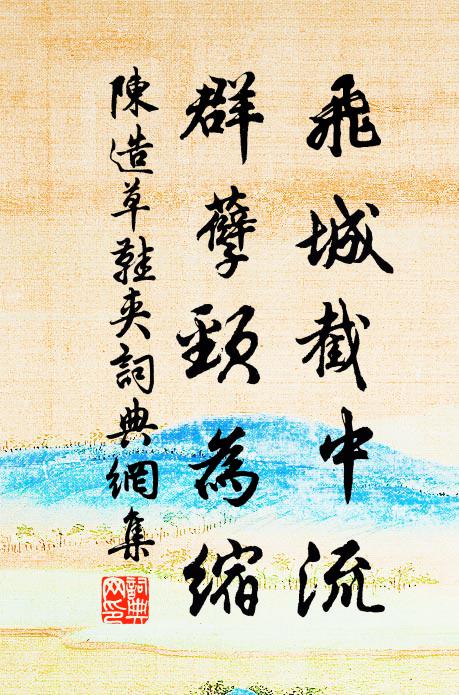 飛城截中流
群孽頸為縮
陳造草鞋夾詞典網集